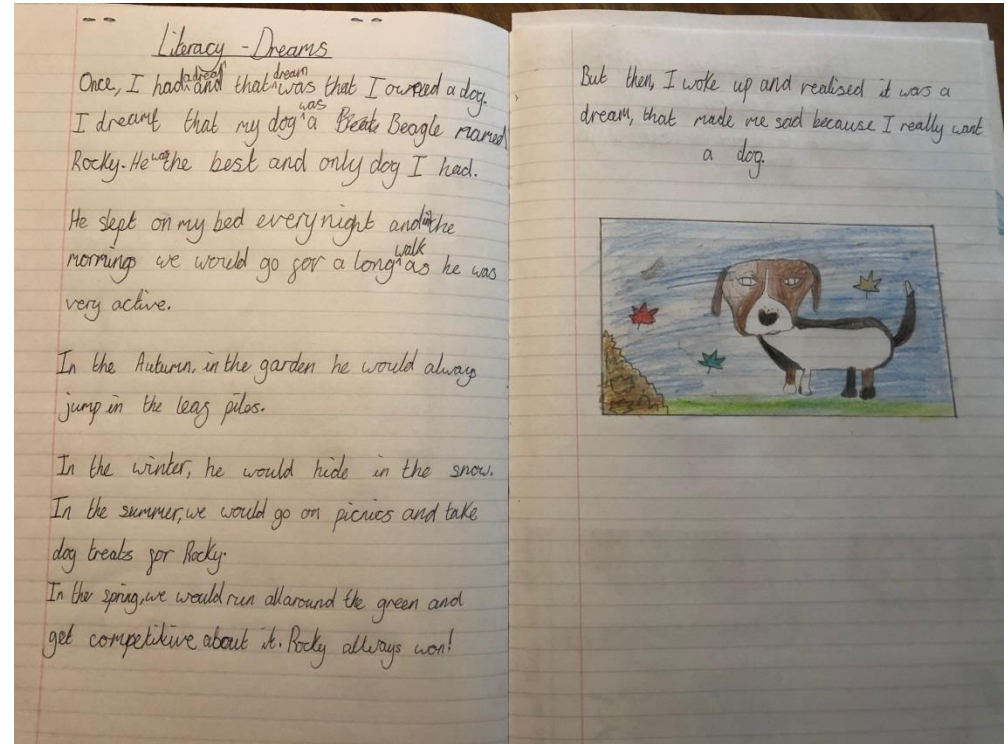 Literacy - Dreams
Once, I had a dream and that dream was that I owned a dog.
I dreamt that my dog was a Beagle named
Rocky. He was the best and only dog I had.
He slept on my bed every night and in the
mornings we would go for a long walk as he was
very active.
In the Autumn, in the garden he would always
jump in the leaf piles.
In the winter, he would hide in the snow.
In the summer, we would go on picnics and take
dog treats for Rocky.
In the spring, we would run all around the green and
get competitive about it. Rocky allways won!
But then, I woke up and realised it was a
dream, that made me sad because I really want
a dog.